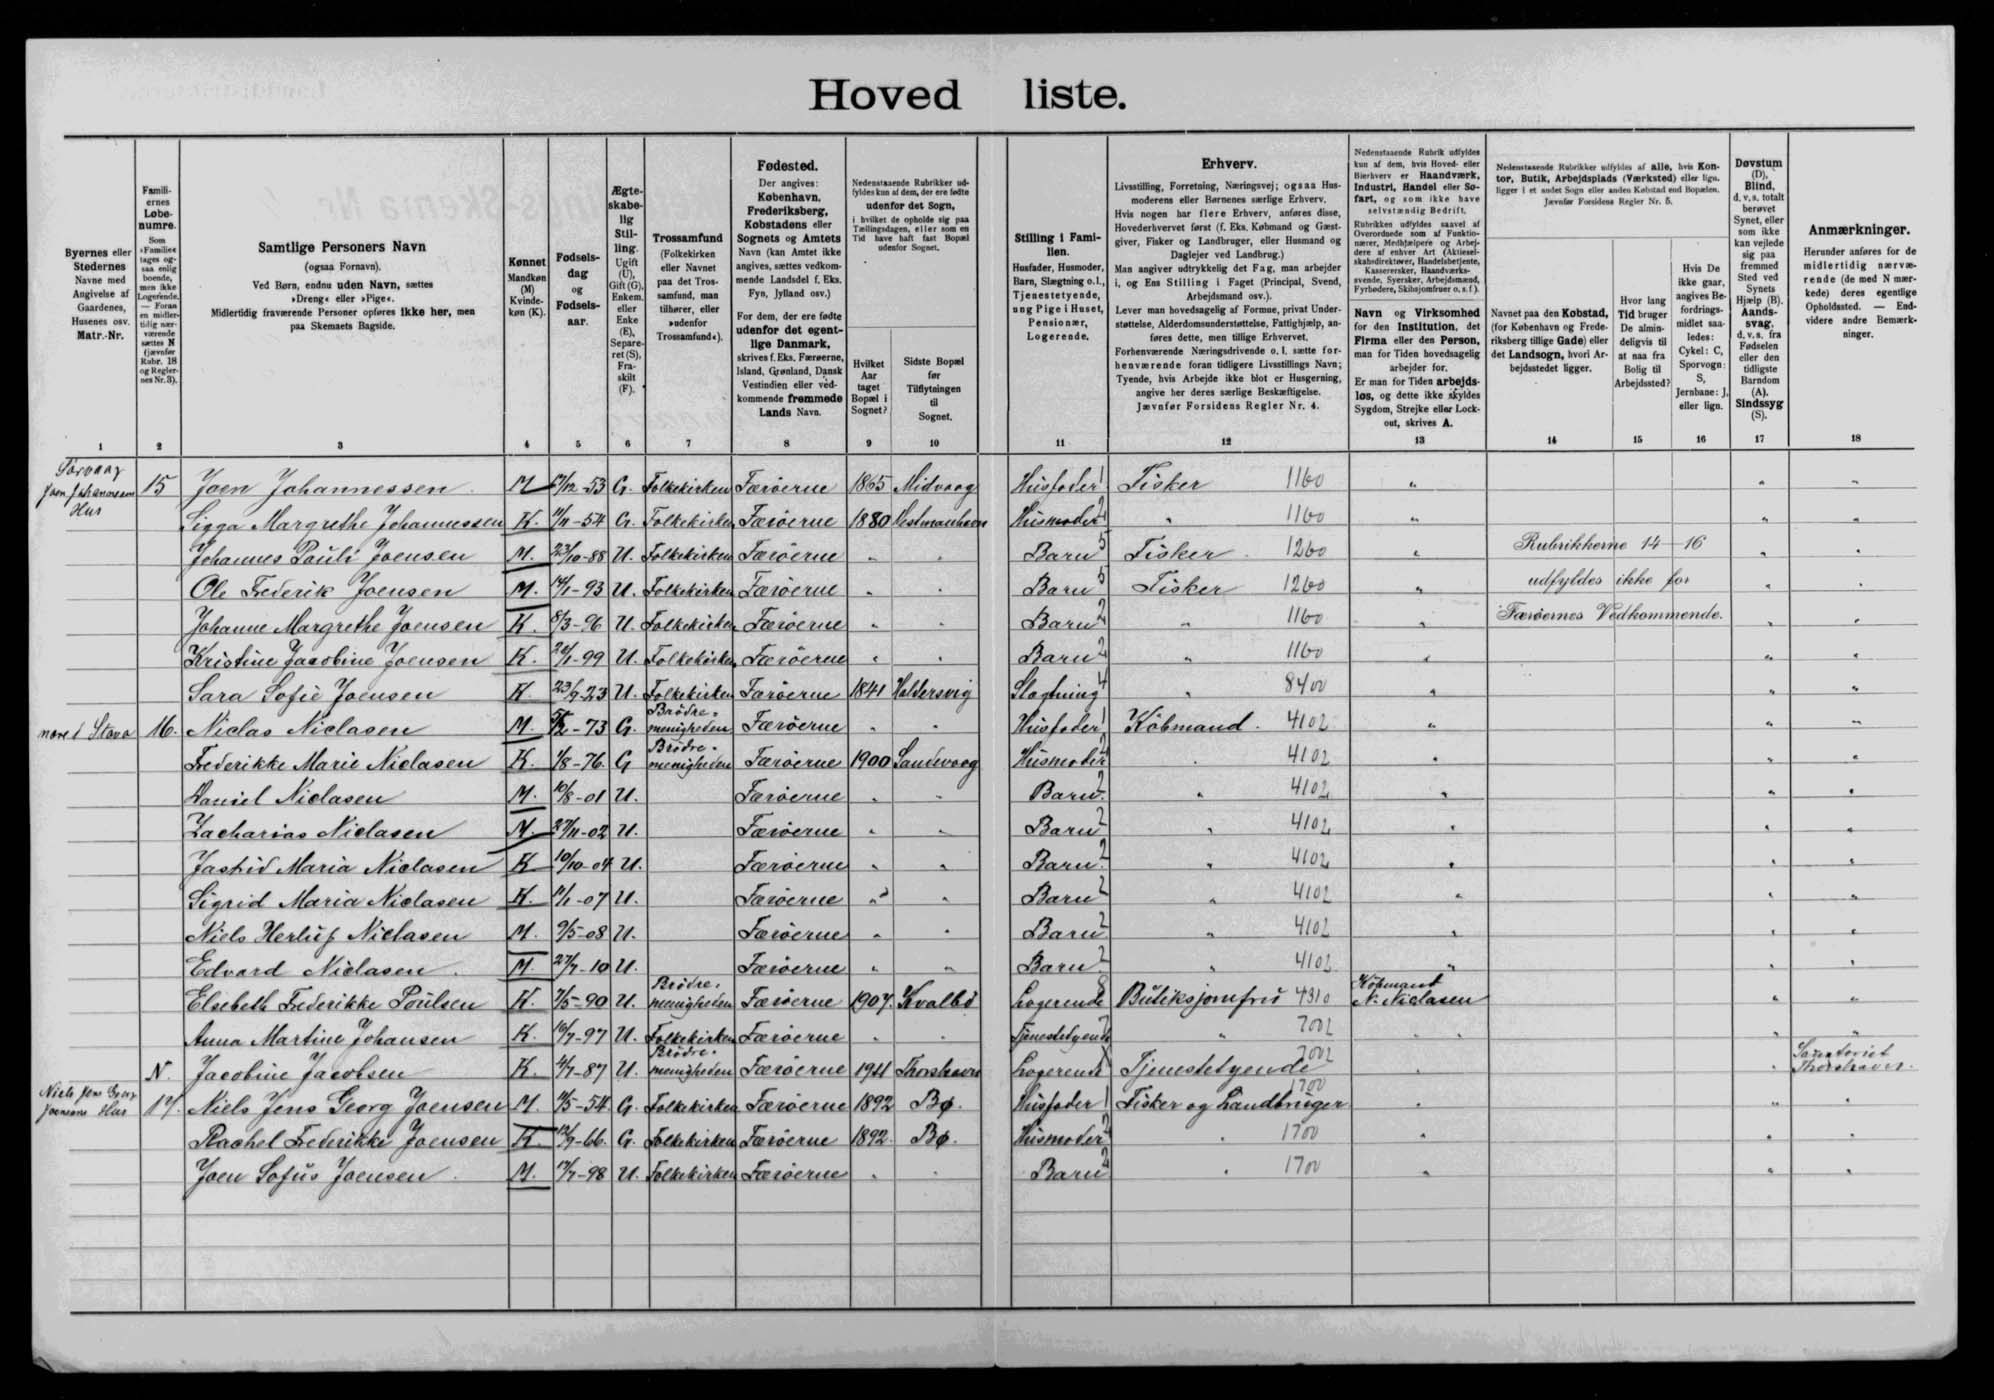 Hoved liste.
Byernes eller Stedernes Navne med Angivelse af Gaardenes, Husenes osv. Matr.-Nr.
Familiernes Løbenumre. Som »Familie« tages ogsaa enlig boende, men ikke Logerende. — Foran en midlertidig nærværende sættes N (jævnfør Rubr. 18 og Regler-nes Nr. 3).
Samtlige Personers Navn (ogsaa Fornavn). Ved Børn, endnu uden Navn, sættes »Dreng« eller »Pige«. Midlertidig fraværende Personer opføres ikke her, men paa Skemaets Bagside.
Kønnet Mandkøn (M) Kvindekøn (K).
Fødselsdag og Fødselsaar.
Ægteskabelig Stilling. Ugift (U), Gift (G), Enkem. eller Enke (E), Separeret (S), Fraskilt (F).
Trossamfund (Folkekirken eller Navnet paa det Trossamfund, man tilhører, eller »udenfor Trossamfund«).
Fødested. Der angives: København, Frederiksberg, Kobstadens eller Sognets og Amtets Navn (kan Amtet ikke angives, sættes vedkommende Landsdel f. Eks. Fyn, Jylland osv.) For dem, der ere fødte udenfor det egentlige Danmark, skrives f. Eks. Færøerne, Island, Grønland, Dansk Vestindien eller vedkommende fremmede Lands Navn.
Nedenstaaende Rubrikker udfyldes kun af dem, der ere fødte udenfor det Sogn, i hvilket de opholde sig paa Tællingsdagen, eller som en Tid have haft fast Bopæl udenfor Sognet.
Hvilket Aar taget Bopæl i Sognet?
Sidste Bopæl før Tilflytningen til Sognet.
Stilling i Familien. Husfader, Husmoder, Barn, Slægtning o.l., Tjenestetyende, ung Pige i Huset, Pensionær, Logerende.
Erhverv. Livsstilling, Forretning, Næringsvej; ogsaa Husmoderens eller Børnenes særlige Erhverv. Hvis nogen har flere Erhverv, anføres disse, Hovederhvervet først (f. Eks. Købmand og Gæstgiver, Fisker og Landbruger, eller Husmand og Daglejer ved Landbrug.) Man angiver udtrykkelig det Fag, man arbejder i, og Ens Stilling i Faget (Principal, Svend, Arbejdsmand osv.). Lever man hovedsagelig af Formue, privat Understøttelse, Alderdomsunderstøttelse, Fattighjælp, anføres dette, men tillige Erhvervet. Forhenværende Næringsdrivende o. l. sætte forhenværende foran tidligere Livsstillings Navn; Tyende, hvis Arbejde ikke blot er Husgerning, angive her deres særlige Beskæftigelse. Jævnfør Forsidens Regler Nr. 4.
Nedenstaaende Rubrik udfyldes kun af dem, hvis Hoved- eller Bierhverv er Haandværk, Industri, Handel eller Søfart, og som ikke have selvstændig Bedrift. Rubrikken udfyldes saavel af Overordnede som af Funktionærer, Medhjælpere og Arbejdere af enhver Art (Aktieselskabsdirektører, Handelsbetjente, Kasserersker, Haandværkssvende, Syersker, Arbejdsmænd, Fyrbødere, Skibsjomfruer o. s. f.).
Navn og Virksomhed for den Institution, det Firma eller den Person, man for Tiden hovedsagelig arbejder for. Er man for Tiden arbejdsløs, og dette ikke skyldes Sygdom, Strejke eller Lockout, skrives A.
Nedenstaaende Rubrikker udfyldes af alle, hvis Kontor, Butik, Arbejdsplads (Værksted) eller lign. ligger i et andet Sogn eller anden Købstad end Bopælen. Jævnfør Forsidens Regler Nr. 5.
Navnet paa den Kobstad, (for København og Frederiksberg tillige Gade) eller det Landsogn, hvori Arbejdsstedet ligger.
Hvor lang Tid bruger De almindeligvis til at naa fra Bolig til Arbejdssted?
Hvis De ikke gaar, angives Befordringsmidlet saaledes: Cykel: C, Sporvogn: S, Jernbane: J, eller lign.
Døvstum (D), Blind, d. v. s. totalt berøvet Synet, eller som ikke kan vejlede sig paa fremmed Sted ved Synets Hjælp (B). Aandssvag, d. v. s. fra Fødselen eller den tidligste Barndom (A). Sindssyg (S).
Anmærkninger. Herunder anføres for de midlertidig nærværende (de med N mærkede) deres egentlige Opholdssted. — Endvidere andre Bemærkninger.
1 2 3 4 5 6 7 8 9 10 11 12 13 14 15 16 17 18
Sørvaag Joen Johannessen Hus 15 Joen Johannessen M /12-53 G. Folkekirken Færøerne 1865 Midvaag Husfader 1 Fisker 1160 " " "
Sigga Margrethe Johannessen K. 11/11-54 G. Folkekirken Færøerne 1880 Vestmanhavn Husmoder 2 " 1160 " " "
Johannes Pouli Joensen M. 23/10-88 U. Folkekirken Færøerne " " Barn 5 Fisker 1260 " Rubrikkerne 14-16 " "
Ole Frederik Joensen M. 14/1-93 U. Folkekirken Færøerne " " Barn 5 Fisker 1260 " udfyldes ikke for " "
Johanne Margrethe Joensen K. 8/3-96 U. Folkekirken Færøerne " " Barn 2 " 1160 " Færøernes Vedkommende. " "
Kristine Jacobine Joensen K. /1-99 U. Folkekirken Færøerne " " Barn 2 " 1160 " " "
Sara Sofie Joensen K. 23/7-23 U. Folkekirken Færøerne 1841 Haldersvig Slægtning 4 " 8400 " " "
16. Niclas Niclasen M. 5/2-73 G. Brødremenigheden Færøerne " " Husfader 1 Købmand. 4102 " " "
Frederikke Marie Niclasen K. 1/8-76. G Brødremenigheden Færøerne 1900 Sandevaag Husmoder 2 " 4102 " " "
Daniel Niclasen M. 10/8-01 U. Færøerne " " Barn 2 " 4102 " " "
Zacharias Niclasen M. 27/11-02 U. Færøerne " " Barn 2 " 4102 " " "
Jastrid Maria Niclasen K 10/10-04 U. Færøerne " " Barn 2 " 4102 " " "
Sigrid Maria Niclasen K. 11/1-07 U. Færøerne " " Barn 2 " 4102 " " "
Niels Herluf Niclasen M. 9/5-08 U. Færøerne " " Barn 2 " 4102 " " "
Edvard Niclasen M. 27/7-10 U. Færøerne " " Barn 2 " 4102 " " "
Elsebeth Frederikke Poulsen K. 7/5-90 U. Brødremenigheden Færøerne 1907. Kvalbø Logerende 8 Butiksjomfru 4310 Købmand N. Niclasen " "
Anna Martine Johansen K. 10/7-97 U. Folkekirken Færøerne " " Tjenestetyende 7 " 7002 " " " "
N. Jacobine Jacobsen K. 4/7-87 U. Brødremenigheden Færøerne 1911 Thorshavn Logerende Tjenestetyende 7002 " " Sanatoriet Thorshavn.
Niels Jens Georg Joensens Hus 17. Niels Jens Georg Joensen M. 11/5-54 G. Folkekirken Færøerne 1892 Bø. Husfader 1 Fisker og Landbruger 1700 " " "
Rachel Frederikke Joensen K. 12/9-66. G. Folkekirken Færøerne 1892. Bø. Husmoder 2 " 1700 " " "
Joen Sofus Joensen M. 17/7-98 U. Folkekirken Færøerne " " Barn 2 " 1700 " " "